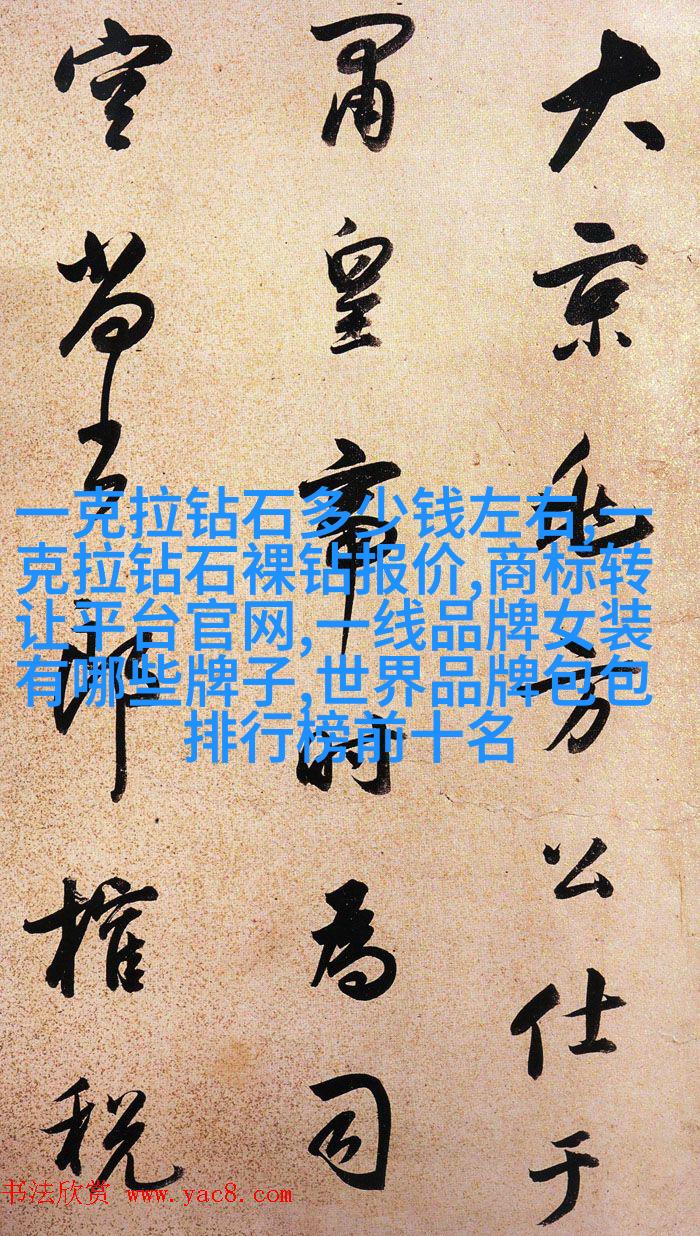 大京兆方公仕于
肅皇帝時為司
空尚書郎榷税
一克拉钻石多少钱左右,一
克拉钻石裸钻报价,商标转
让平台官网,一线品牌女装
有哪些牌子,世界品牌包包
排行榜前十名
书法欣赏 www.yac8.com